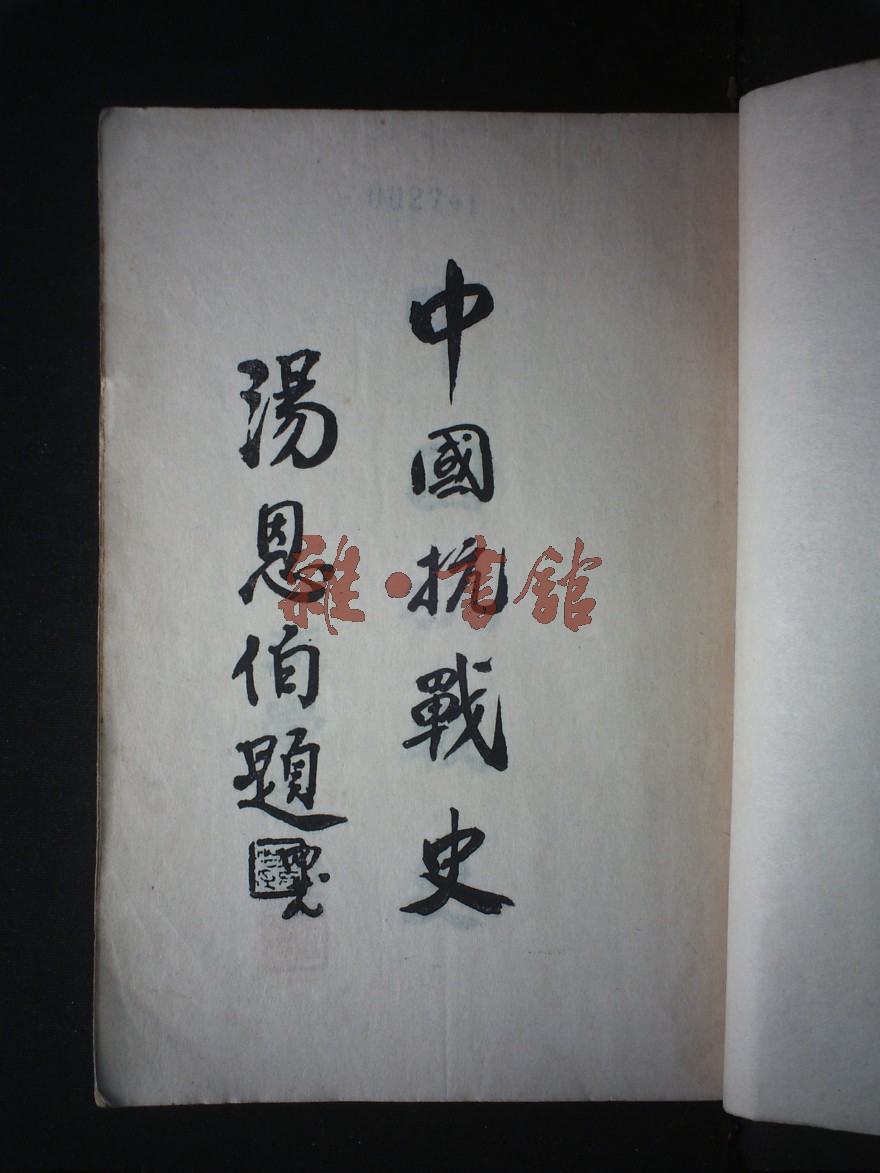 中國抗戰史
湯恩伯題
雜·書館